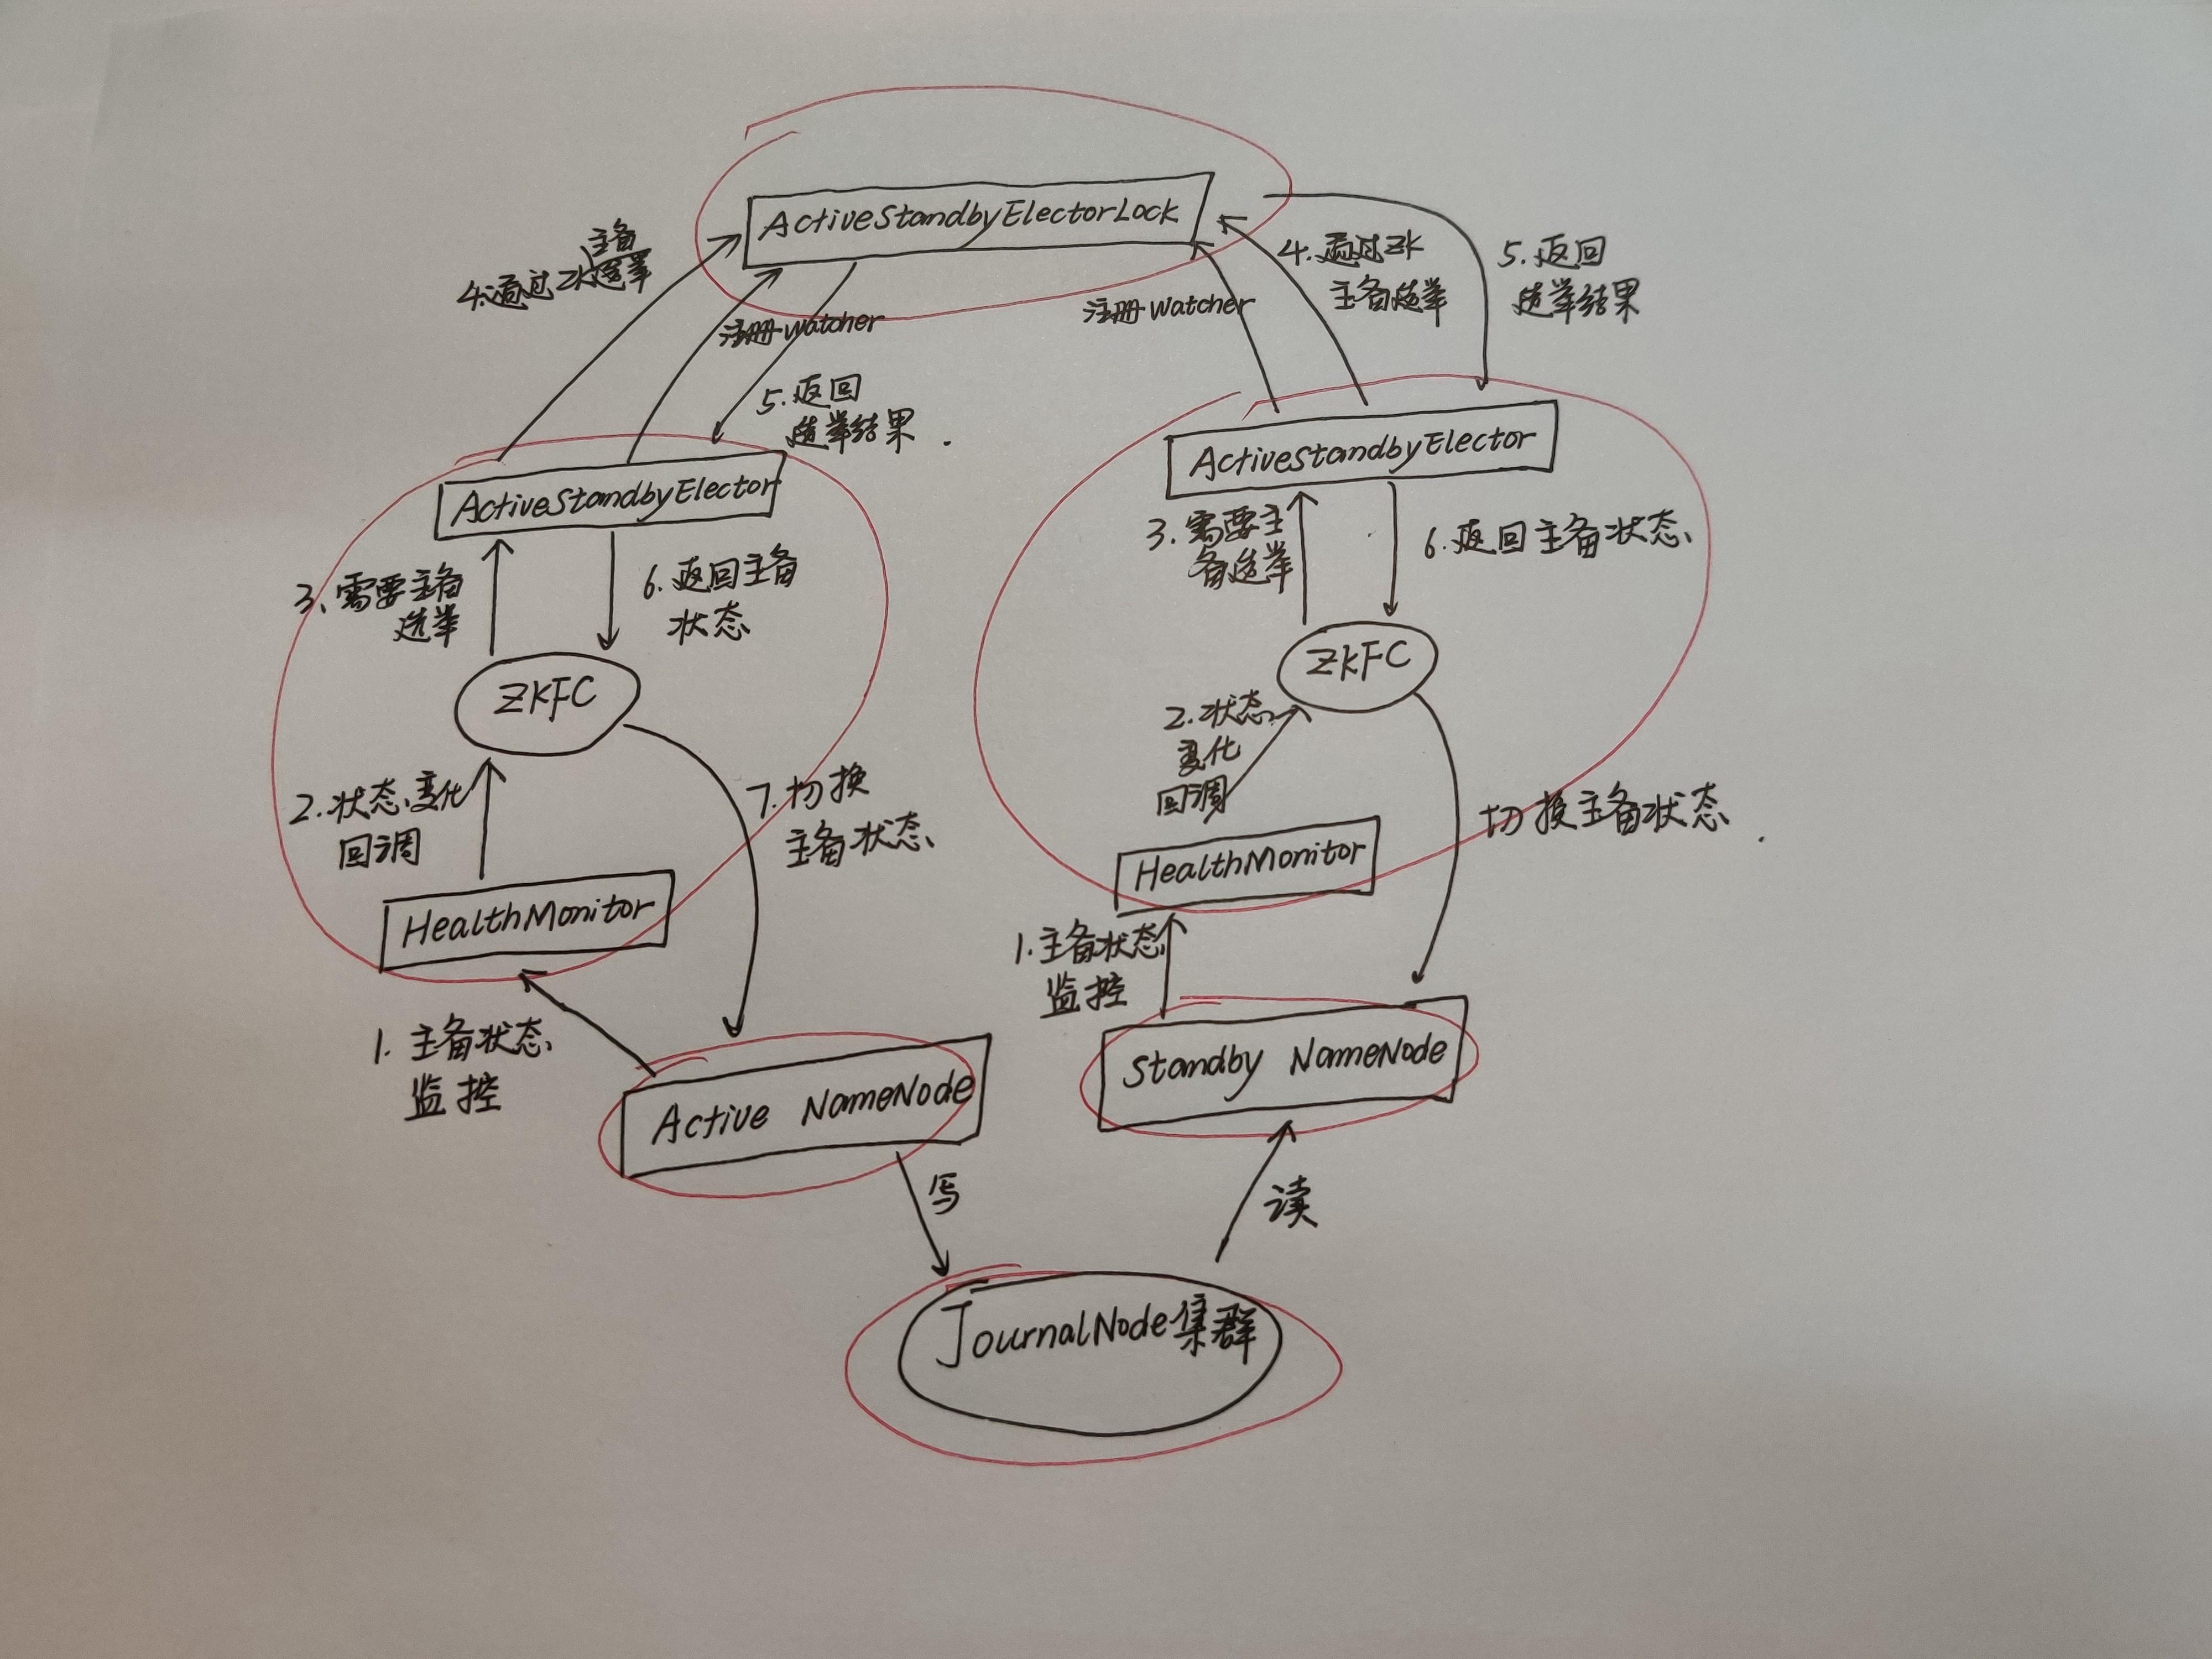 ActiveStandbyElectorLock
主备
4.通过zk选举
注册watcher
5.返回
选举结果.
注册watcher
4.通过zk
主备选举
5.返回
选举结果
ActiveStandbyElector
3、需要主备
选举
6.返回主备
状态
ZKFC
2.状态变化
回调
7.切换
主备状态
HealthMonitor
1.主备状态
监控
Active NameNode
写
ActiveStandbyElector
3.需要主
备选举
6.返回主备状态
ZKFC
2.状态
变化
回调
切换主备状态.
HealthMonitor
1.主备状态
监控
Standby NameNode
读
JournalNode集群